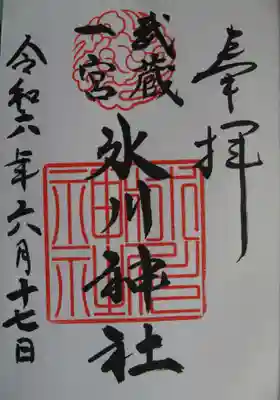 奉拝
武蔵
一宮
氷川神社
令和六年六月十七日
氷川
神社